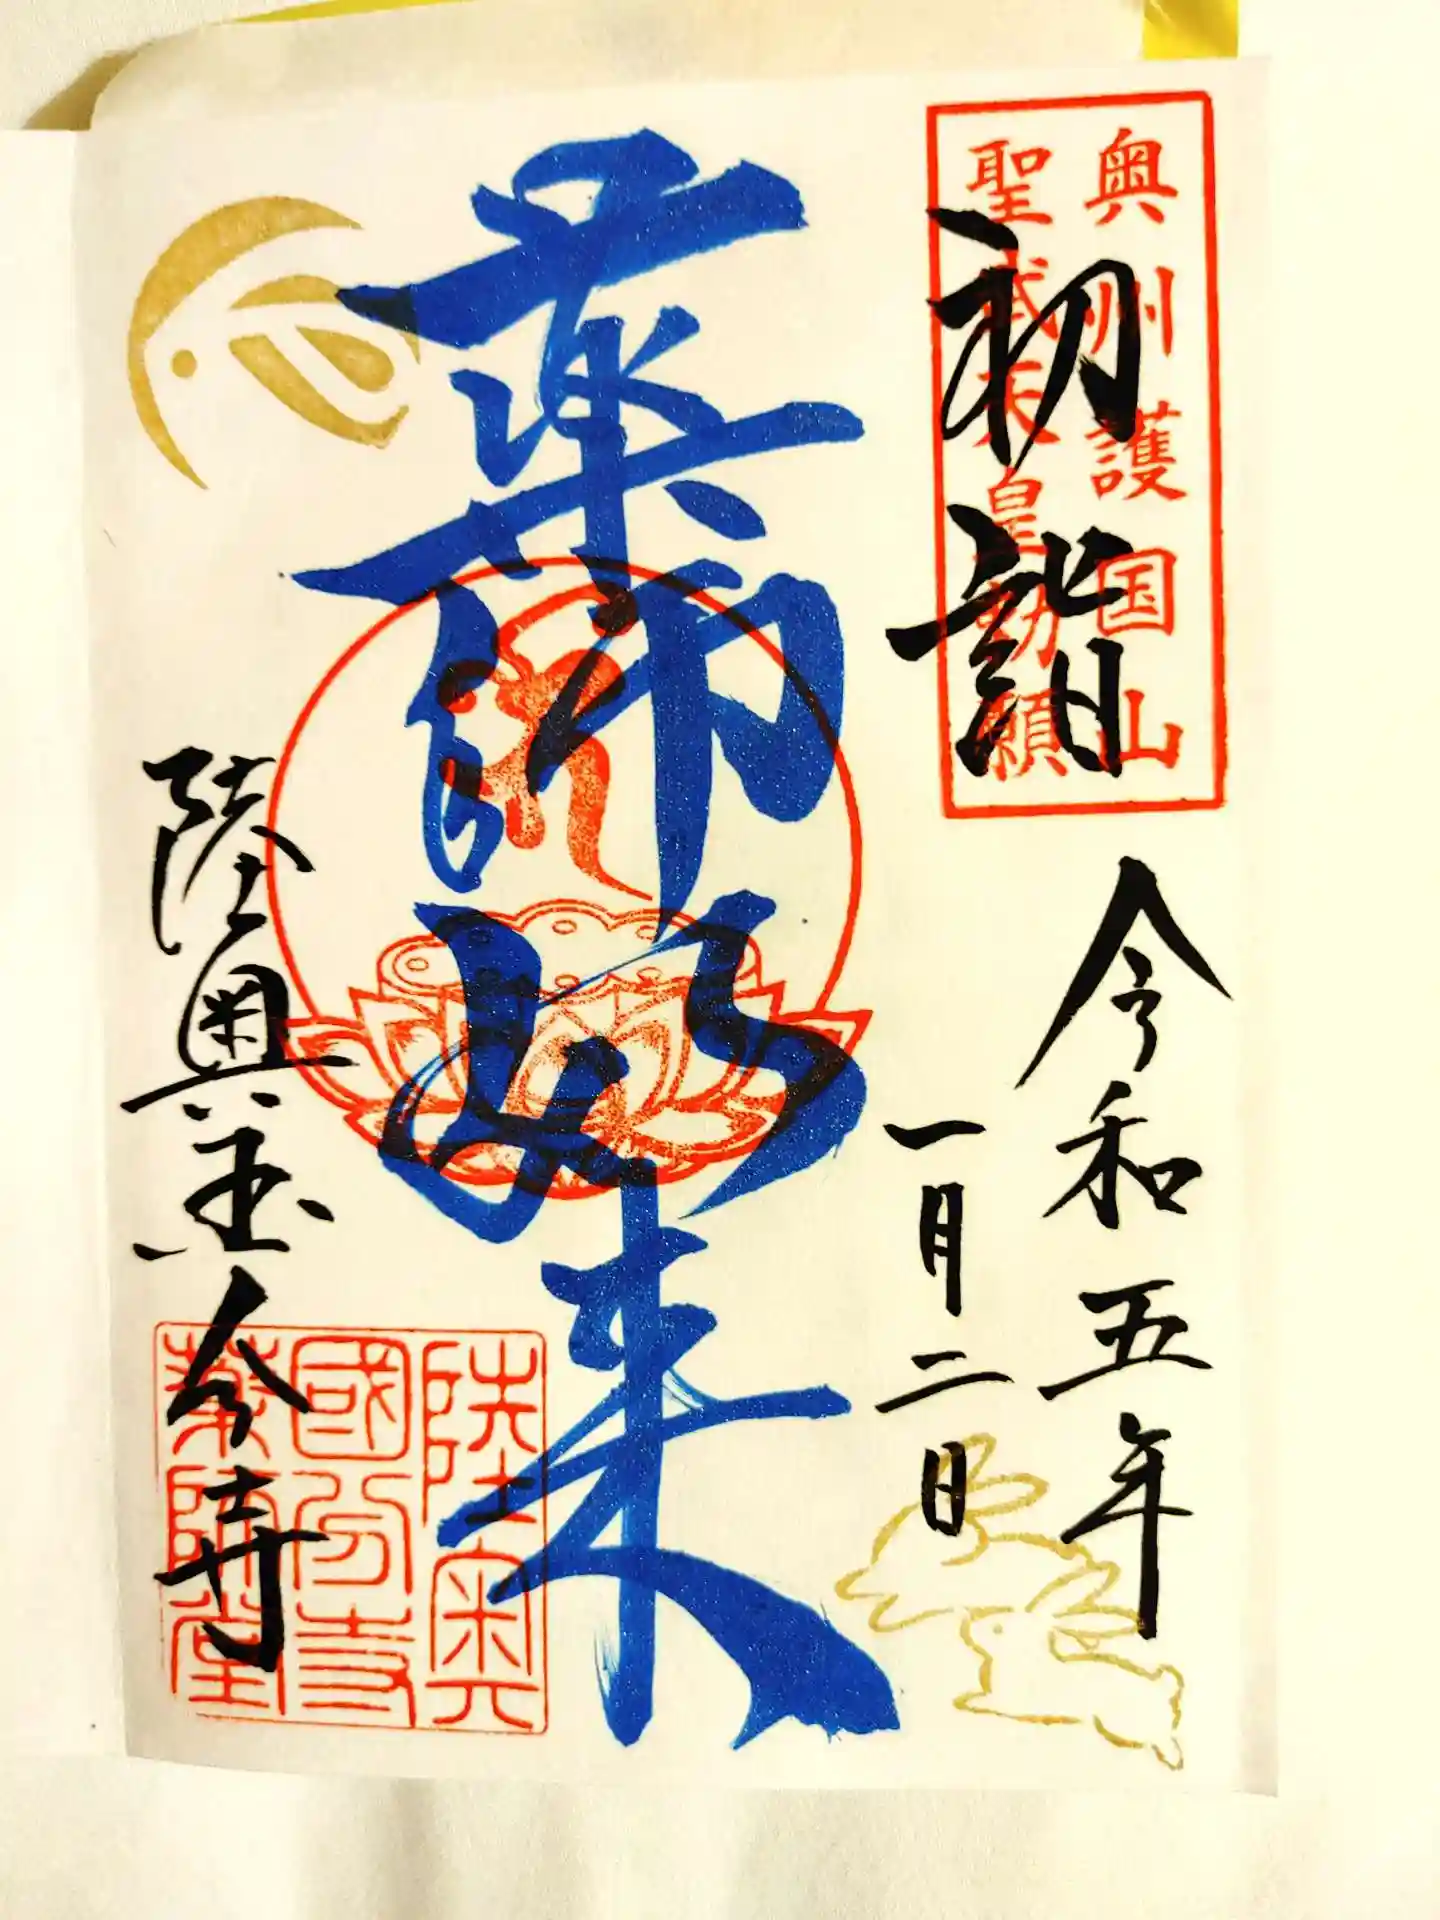 奥州護国山
聖武天皇勅願
初詣
令和五年
一月二日
薬師如来
陸奥国分寺
陸奥
國分寺
薬師堂